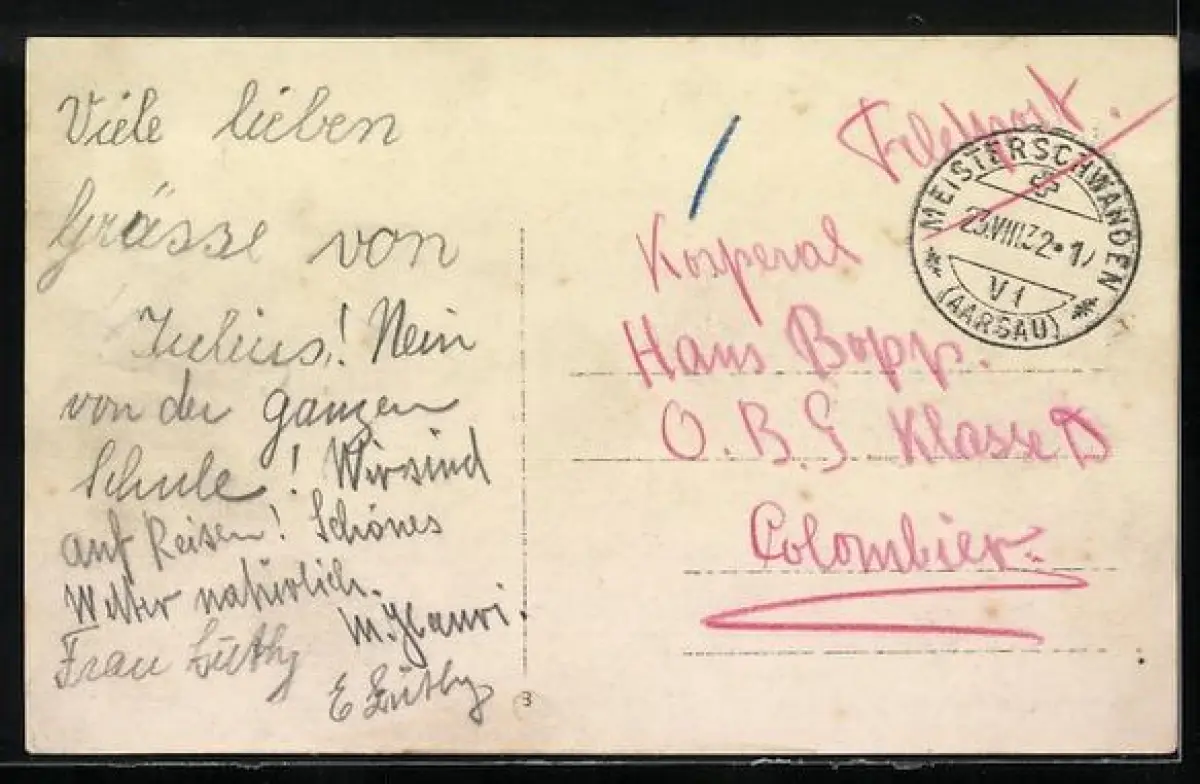 Viele lieben
Grüsse von
Julius! Nein
von der ganzen
Schule! Wir sind
auf Reisen! Schönes
Wetter natürlich.
M. Hauri.
Frau Lüthy
E Lüthy
3
Feldpost.
MEISTERSCHWANDEN
23.VIII.32
VI
(AARGAU)
Korperal
Hans Bopp.
O. B. S Klasse D
Colombier